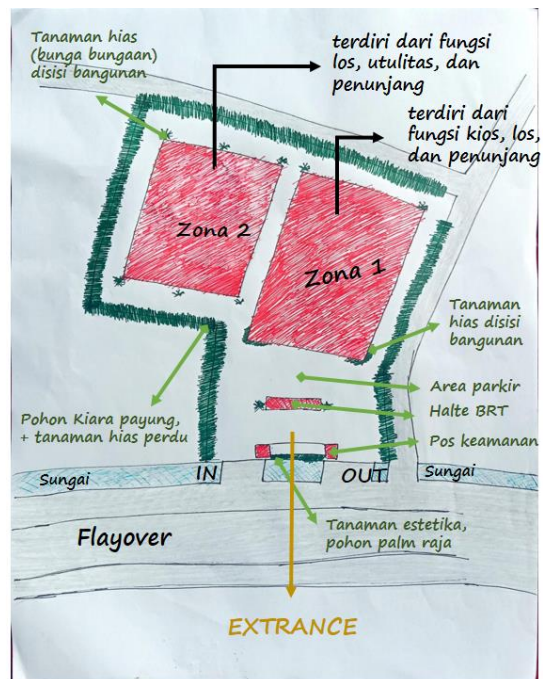 Tanaman hias
(bunga bungaan)
disisi bangunan
terdiri dari fungsi
los, utulitas, dan
penunjang
terdiri dari
fungsi kios, los,
dan penunjang
Zona 2
Zona 1
Tanaman
hias disisi
bangunan
Area parkir
Halte BRT
Pos keamanan
Pohon Kiara payung,
+ tanaman hias perdu
Sungai
IN
OUT
Sungai
Flayover
Tanaman estetika,
pohon palm raja
EXTRANCE